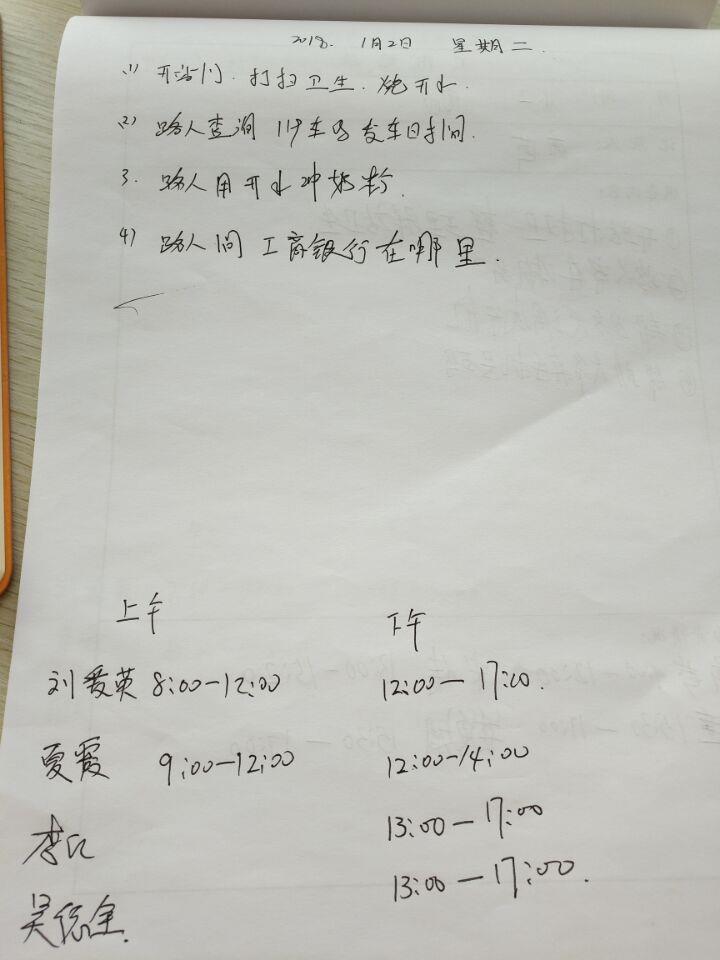 2018. 1月2日 星期二.
(1) 开站门. 打扫卫生. 烧开水.
(2) 路人查询 119车的发车时间.
3. 路人用开水冲奶粉.
4) 路人问工商银行在哪里.
上午 下午
刘爱英 8:00-12:00 12:00-17:00.
夏霞 9:00-12:00 12:00-14:00
李江 13:00-17:00
吴 13:00-17:00.